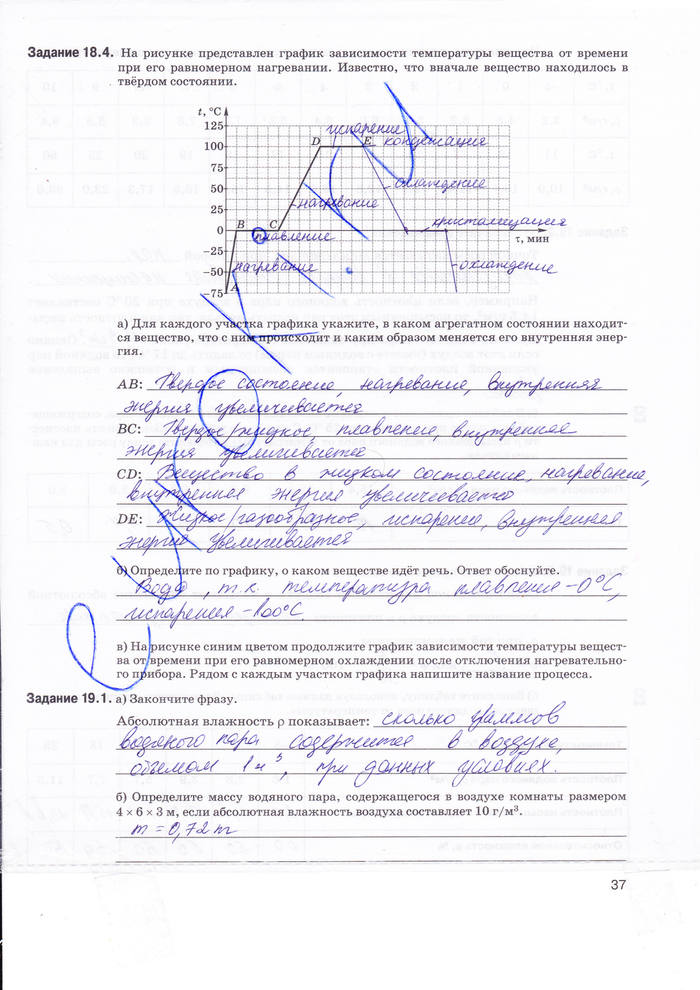 Задание 18.4. На рисунке представлен график зависимости температуры вещества от времени
при его равномерном нагревании. Известно, что вначале вещество находилось в
твёрдом состоянии.
t, °C
125
100
75
50
25
0
−25
−50
−75
D
испарение
E
конденсация
охлаждение
нагревание
B
C
плавление
кристализация
τ, мин
нагревание
A
охлаждение
а) Для каждого участка графика укажите, в каком агрегатном состоянии находит-
ся вещество, что с ним происходит и каким образом меняется его внутренняя энер-
гия.
AB: Твердое состояние, нагревание, внутренняя
энергия увеличивается
BC: Твердое/жидкое, плавление, внутренняя
энергия увеличивается
CD: Вещество в жидком состояние, нагревание,
внутренняя энергия увеличивается
DE: Жидкое/газообразное, испарение, внутренняя
энергия увеличивается
б) Определите по графику, о каком веществе идёт речь. Ответ обоснуйте.
Вода, т.к. температура плавления -0°C,
испарения -100°C.
в) На рисунке синим цветом продолжите график зависимости температуры вещест-
ва от времени при его равномерном охлаждении после отключения нагревательно-
го прибора. Рядом с каждым участком графика напишите название процесса.
Задание 19.1. а) Закончите фразу.
Абсолютная влажность ρ показывает: сколько граммов
водяного пара содержится в воздухе,
объемом 1 м³, при данных условиях.
б) Определите массу водяного пара, содержащегося в воздухе комнаты размером
4 × 6 × 3 м, если абсолютная влажность воздуха составляет 10 г/м³.
m = 0,72 кг
37